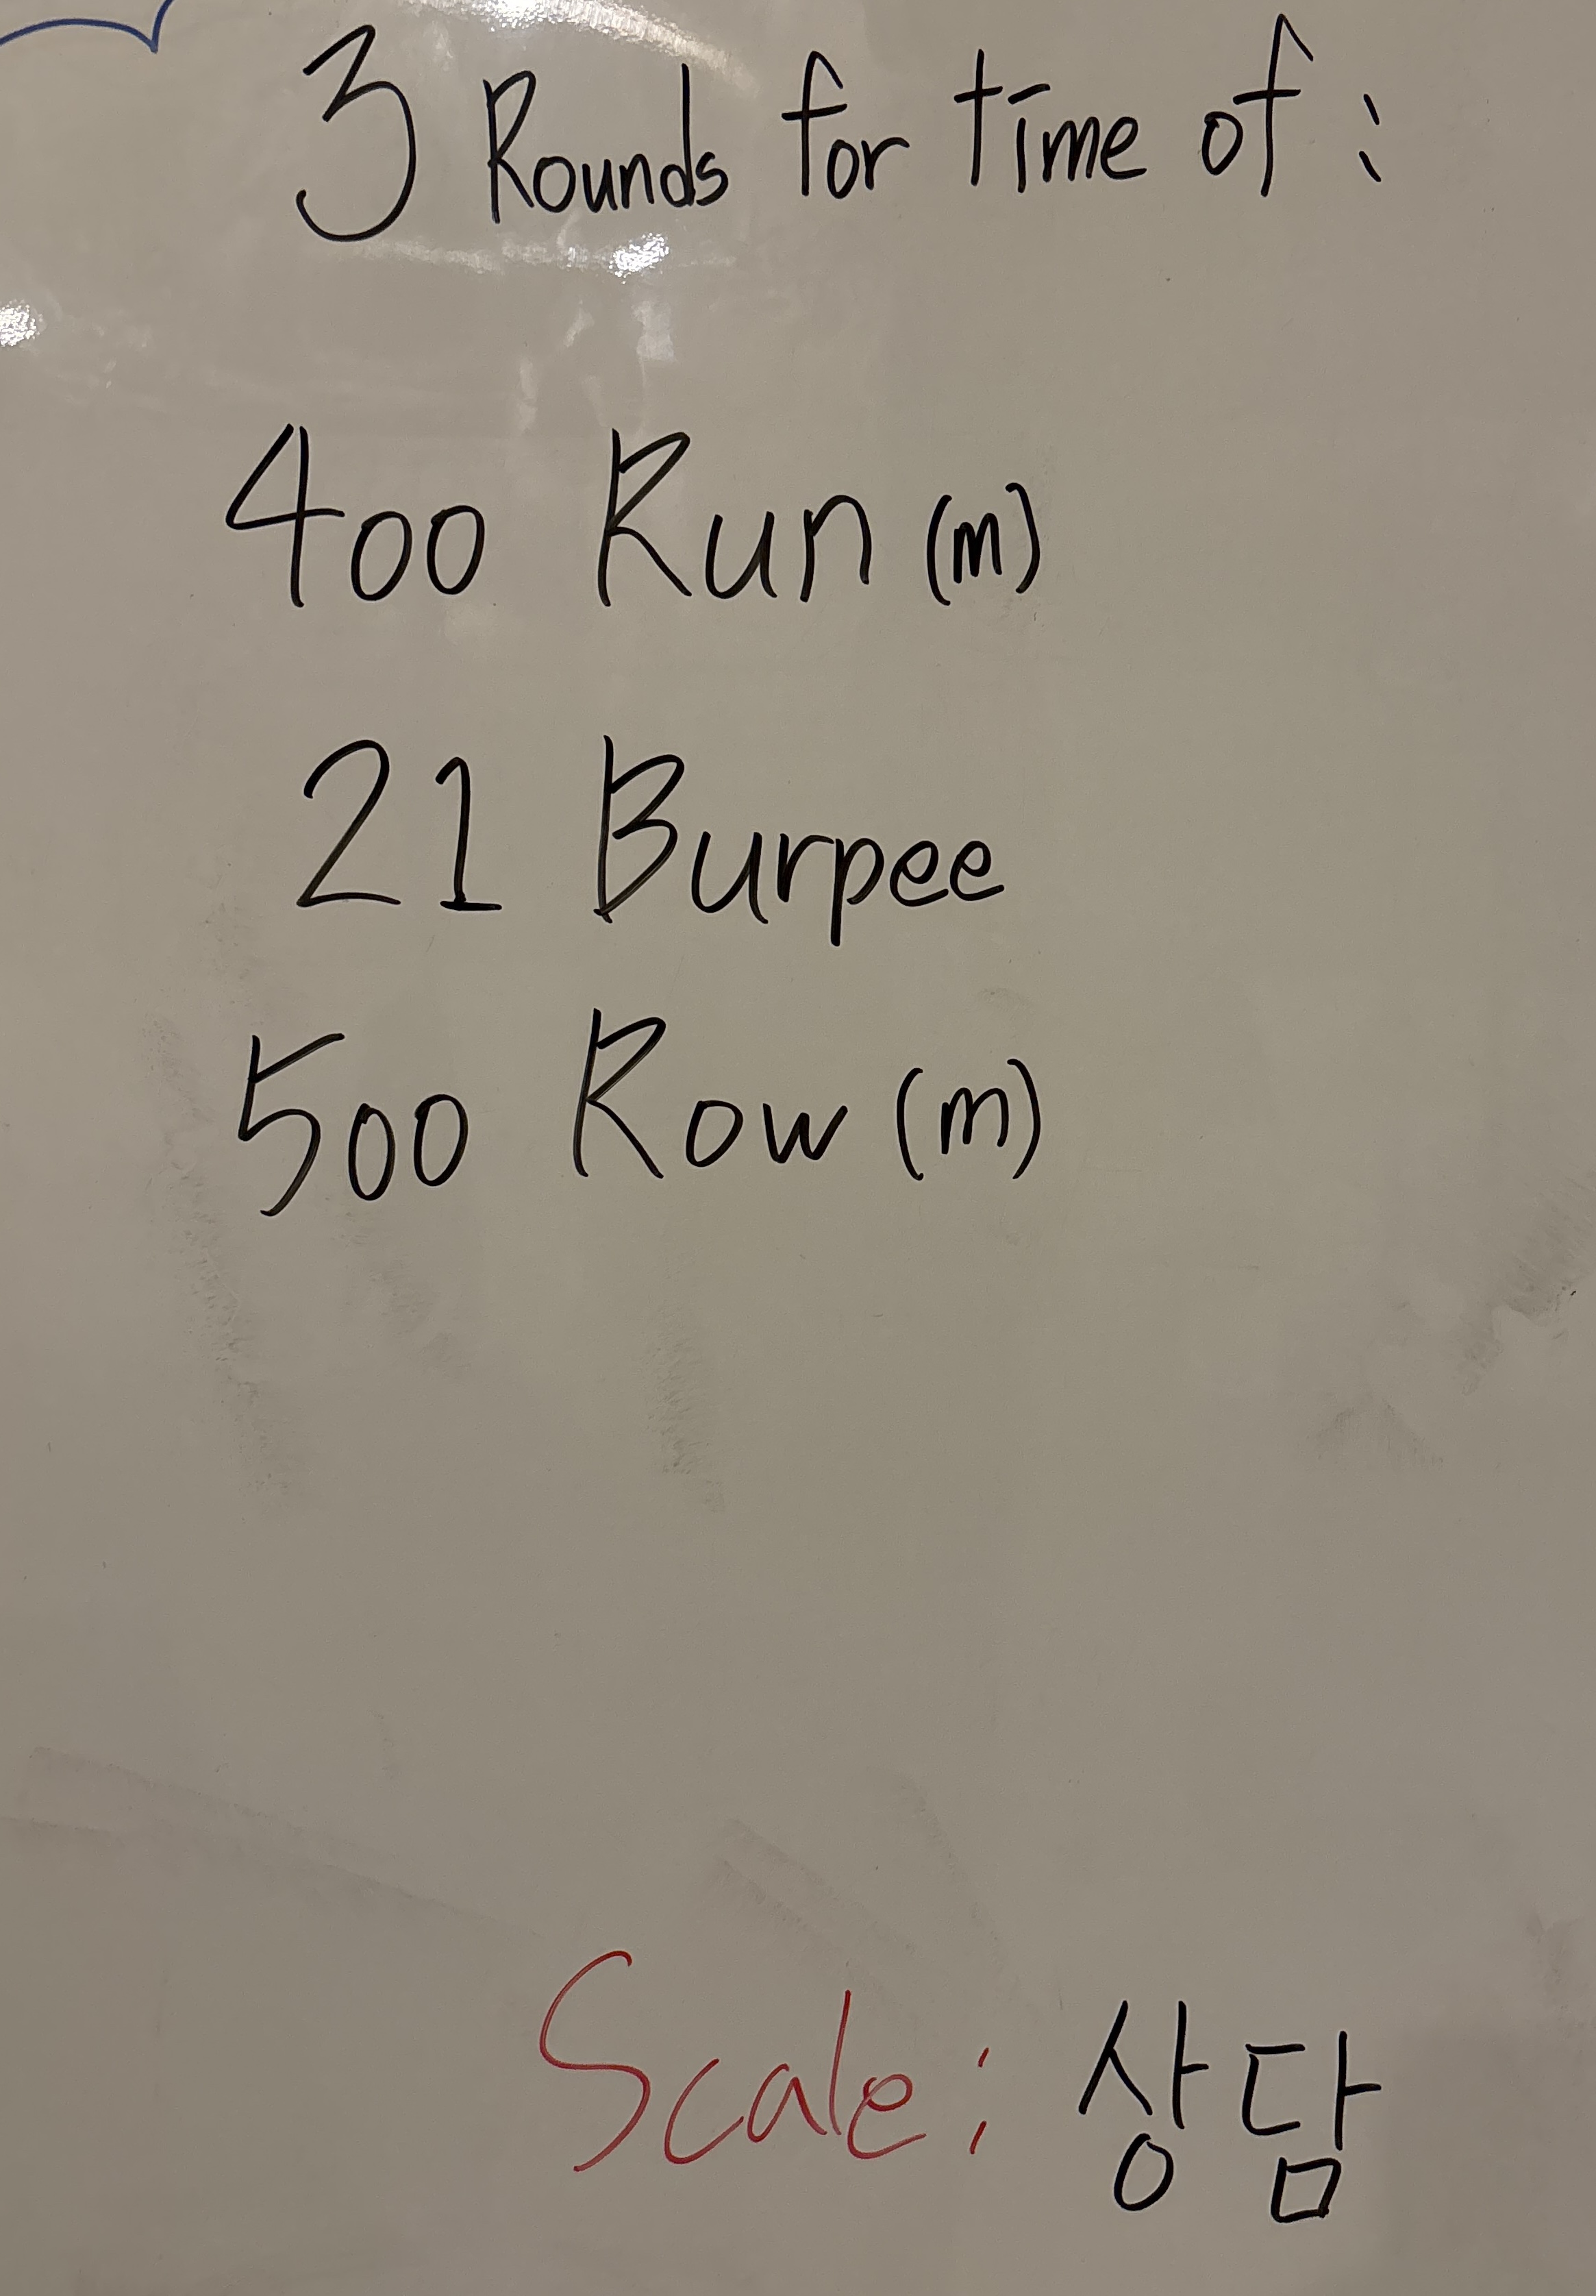 3 Rounds for time of :
400 Run (m)
21 Burpee
500 Row (m)
Scale : 상담